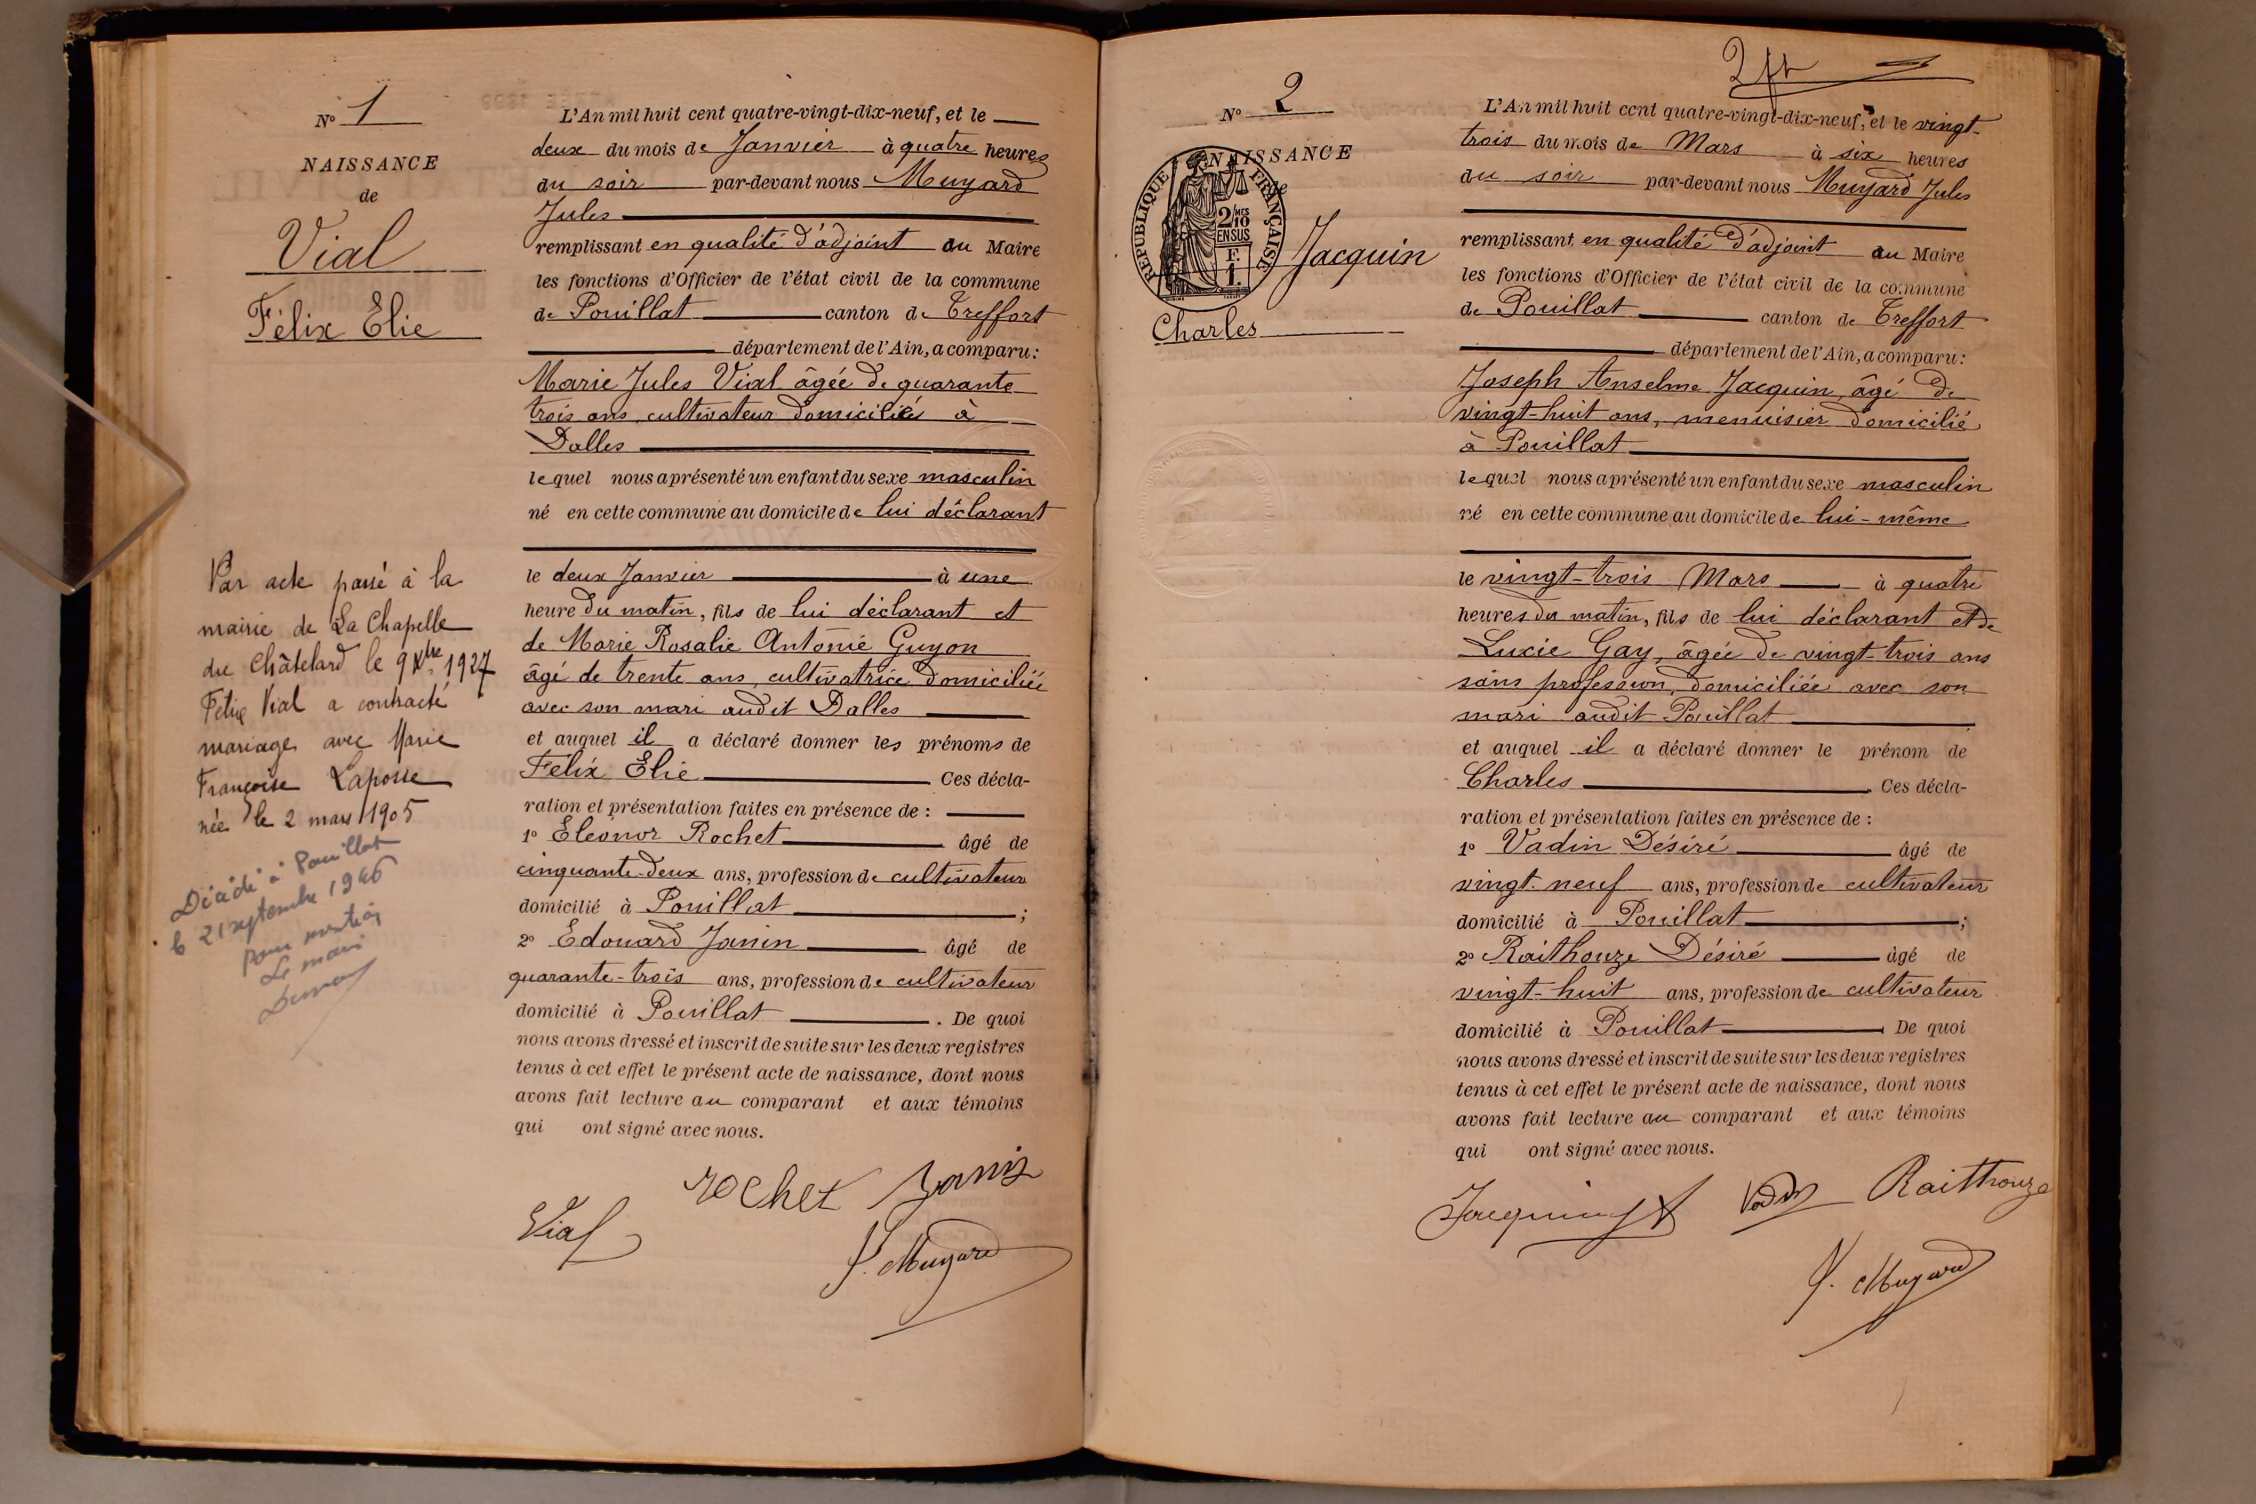 N° 1
NAISSANCE
de
Vial
Félix Elie
L'An mil huit cent quatre-vingt-dix-neuf, et le
deux du mois de Janvier à quatre heures
du soir par-devant nous Muyard
Jules
remplissant en qualité d'adjoint au Maire
les fonctions d'Officier de l'état civil de la commune
de Pouillat canton de Treffort
département de l'Ain, a comparu:
Marie Jules Vial âgée de quarante
trois ans, cultivateur domicilié à
Dalles
lequel nous a présenté un enfant du sexe masculin
né en cette commune au domicile de lui déclarant
le deux Janvier à une
heure du matin, fils de lui déclarant et
de Marie Rosalie Antonie Guyon
âgé de trente ans, cultivatrice domiciliée
avec son mari audit Dalles
et auquel il a déclaré donner les prénoms de
Félix Elie Ces décla-
ration et présentation faites en présence de :
1° Eléonor Rochet âgé de
cinquante-deux ans, profession de cultivateur
domicilié à Pouillat ;
2° Edouard Janin âgé de
quarante-trois ans, profession de cultivateur
domicilié à Pouillat . De quoi
nous avons dressé et inscrit de suite sur les deux registres
tenus à cet effet le présent acte de naissance, dont nous
avons fait lecture au comparant et aux témoins
qui ont signé avec nous.
Rochet Janin
Vial
J. Muyard
Par acte passé à la
mairie de La Chapelle
du Châtelard le 9 Xbre 1927
Félix Vial a contracté
mariage avec Marie
Françoise Laposse
née le 2 mars 1905
Décédé à Pouillat
le 21 septembre 1946
pour mention
Le maire
2
N° 2
NAISSANCE
de
RÉPUBLIQUE FRANÇAISE
2/10MES
EN SUS
F.
1.
Jacquin
Charles
L'An mil huit cent quatre-vingt-dix-neuf, et le vingt-
trois du mois de Mars à six heures
du soir par-devant nous Muyard Jules
remplissant en qualité d'adjoint au Maire
les fonctions d'Officier de l'état civil de la commune
de Pouillat canton de Treffort
département de l'Ain, a comparu:
Joseph Anselme Jacquin, âgé de
vingt-huit ans, menuisier domicilié
à Pouillat
lequel nous a présenté un enfant du sexe masculin
né en cette commune au domicile de lui-même
le vingt-trois Mars à quatre
heures du matin, fils de lui déclarant et de
Lucie Gay, âgée de vingt-trois ans
sans profession, domiciliée avec son
mari audit Pouillat
et auquel il a déclaré donner le prénom de
Charles . Ces décla-
ration et présentation faites en présence de :
1° Vadin Désiré âgé de
vingt-neuf ans, profession de cultivateur
domicilié à Pouillat ;
2° Raithouze Désiré âgé de
vingt-huit ans, profession de cultivateur
domicilié à Pouillat . De quoi
nous avons dressé et inscrit de suite sur les deux registres
tenus à cet effet le présent acte de naissance, dont nous
avons fait lecture au comparant et aux témoins
qui ont signé avec nous.
Jacquin Vadin Raithouze
J. Muyard